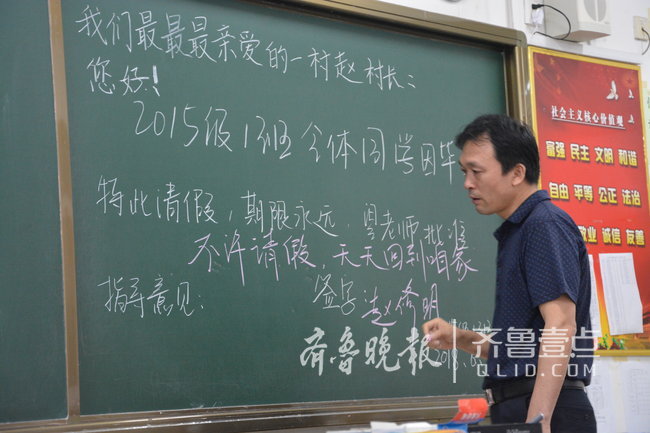 我们最最最亲爱的一村赵村长:
您好!
2015级1班全体同学因毕
特此请假,期限永远,望老师批准
不许请假,天天回到咱家
指导意见:
签字 赵修明
2018.
社会主义核心价值观
富强 民主 文明 和谐
自由 平等 公正 法治
敬业 诚信 友善
齐鲁晚报
齐鲁壹点
QLID.COM